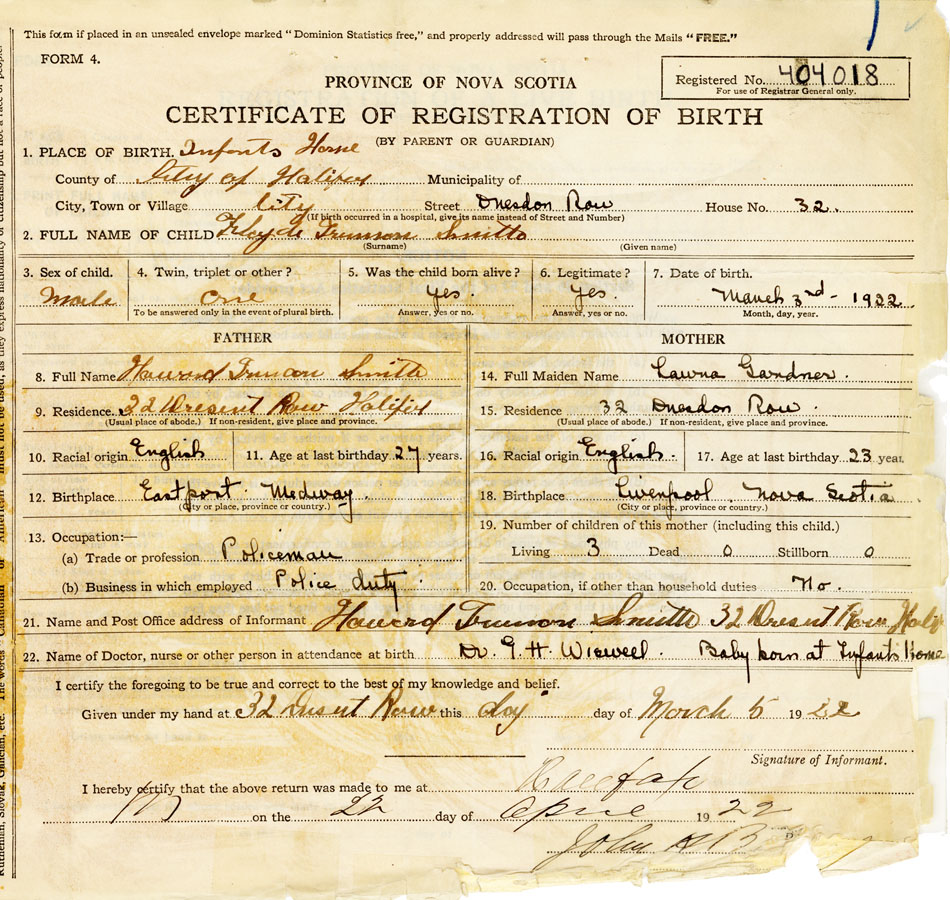 This form if placed in an unsealed envelope marked "Dominion Statistics free," and properly addressed will pass through the Mails "FREE."
FORM 4.
PROVINCE OF NOVA SCOTIA
Registered No. 404018
For use of Registrar General only.
CERTIFICATE OF REGISTRATION OF BIRTH
(BY PARENT OR GUARDIAN)
1. PLACE OF BIRTH. Infants Home
County of City of Halifax Municipality of
City, Town or Village City Street Dresdon Row House No. 32.
(If birth occurred in a hospital, give its name instead of Street and Number)
2. FULL NAME OF CHILD Floyde Trumon Smith
(Surname) (Given name)
3. Sex of child. 4. Twin, triplet or other? 5. Was the child born alive? 6. Legitimate? 7. Date of birth.
Male one yes. Yes. March 3rd - 1922
To be answered only in the event of plural birth. Answer, yes or no. Answer, yes or no. Month, day, year.
FATHER MOTHER
8. Full Name Howard Trumon Smith 14. Full Maiden Name Gardner.
9. Residence. 32 Dresent Row Halifax 15. Residence 32 Dresdon Row.
(Usual place of abode.) If non-resident, give place and province. (Usual place of abode.) If non-resident, give place and province.
10. Racial origin English 11. Age at last birthday 27 years. 16. Racial origin English. 17. Age at last birthday 23 year
12. Birthplace Eastport. Medway. 18. Birthplace Liverpool, Nova Scotia
(City or place, province or country.) (City or place, province or country.)
13. Occupation:— 19. Number of children of this mother (including this child.)
(a) Trade or profession Policeman Living 3 Dead 0 Stillborn 0
(b) Business in which employed Police duty. 20. Occupation, if other than household duties No.
21. Name and Post Office address of Informant Howard Trumon Smith 32 Dresent Row Halif
22. Name of Doctor, nurse or other person in attendance at birth Dr. G. H. Baby born at Infants Home
I certify the foregoing to be true and correct to the best of my knowledge and belief.
Given under my hand at 32 Row this day day of March 5 1922
Signature of Informant.
I hereby certify that the above return was made to me at Halifax
on the 22 day of April 1922
John